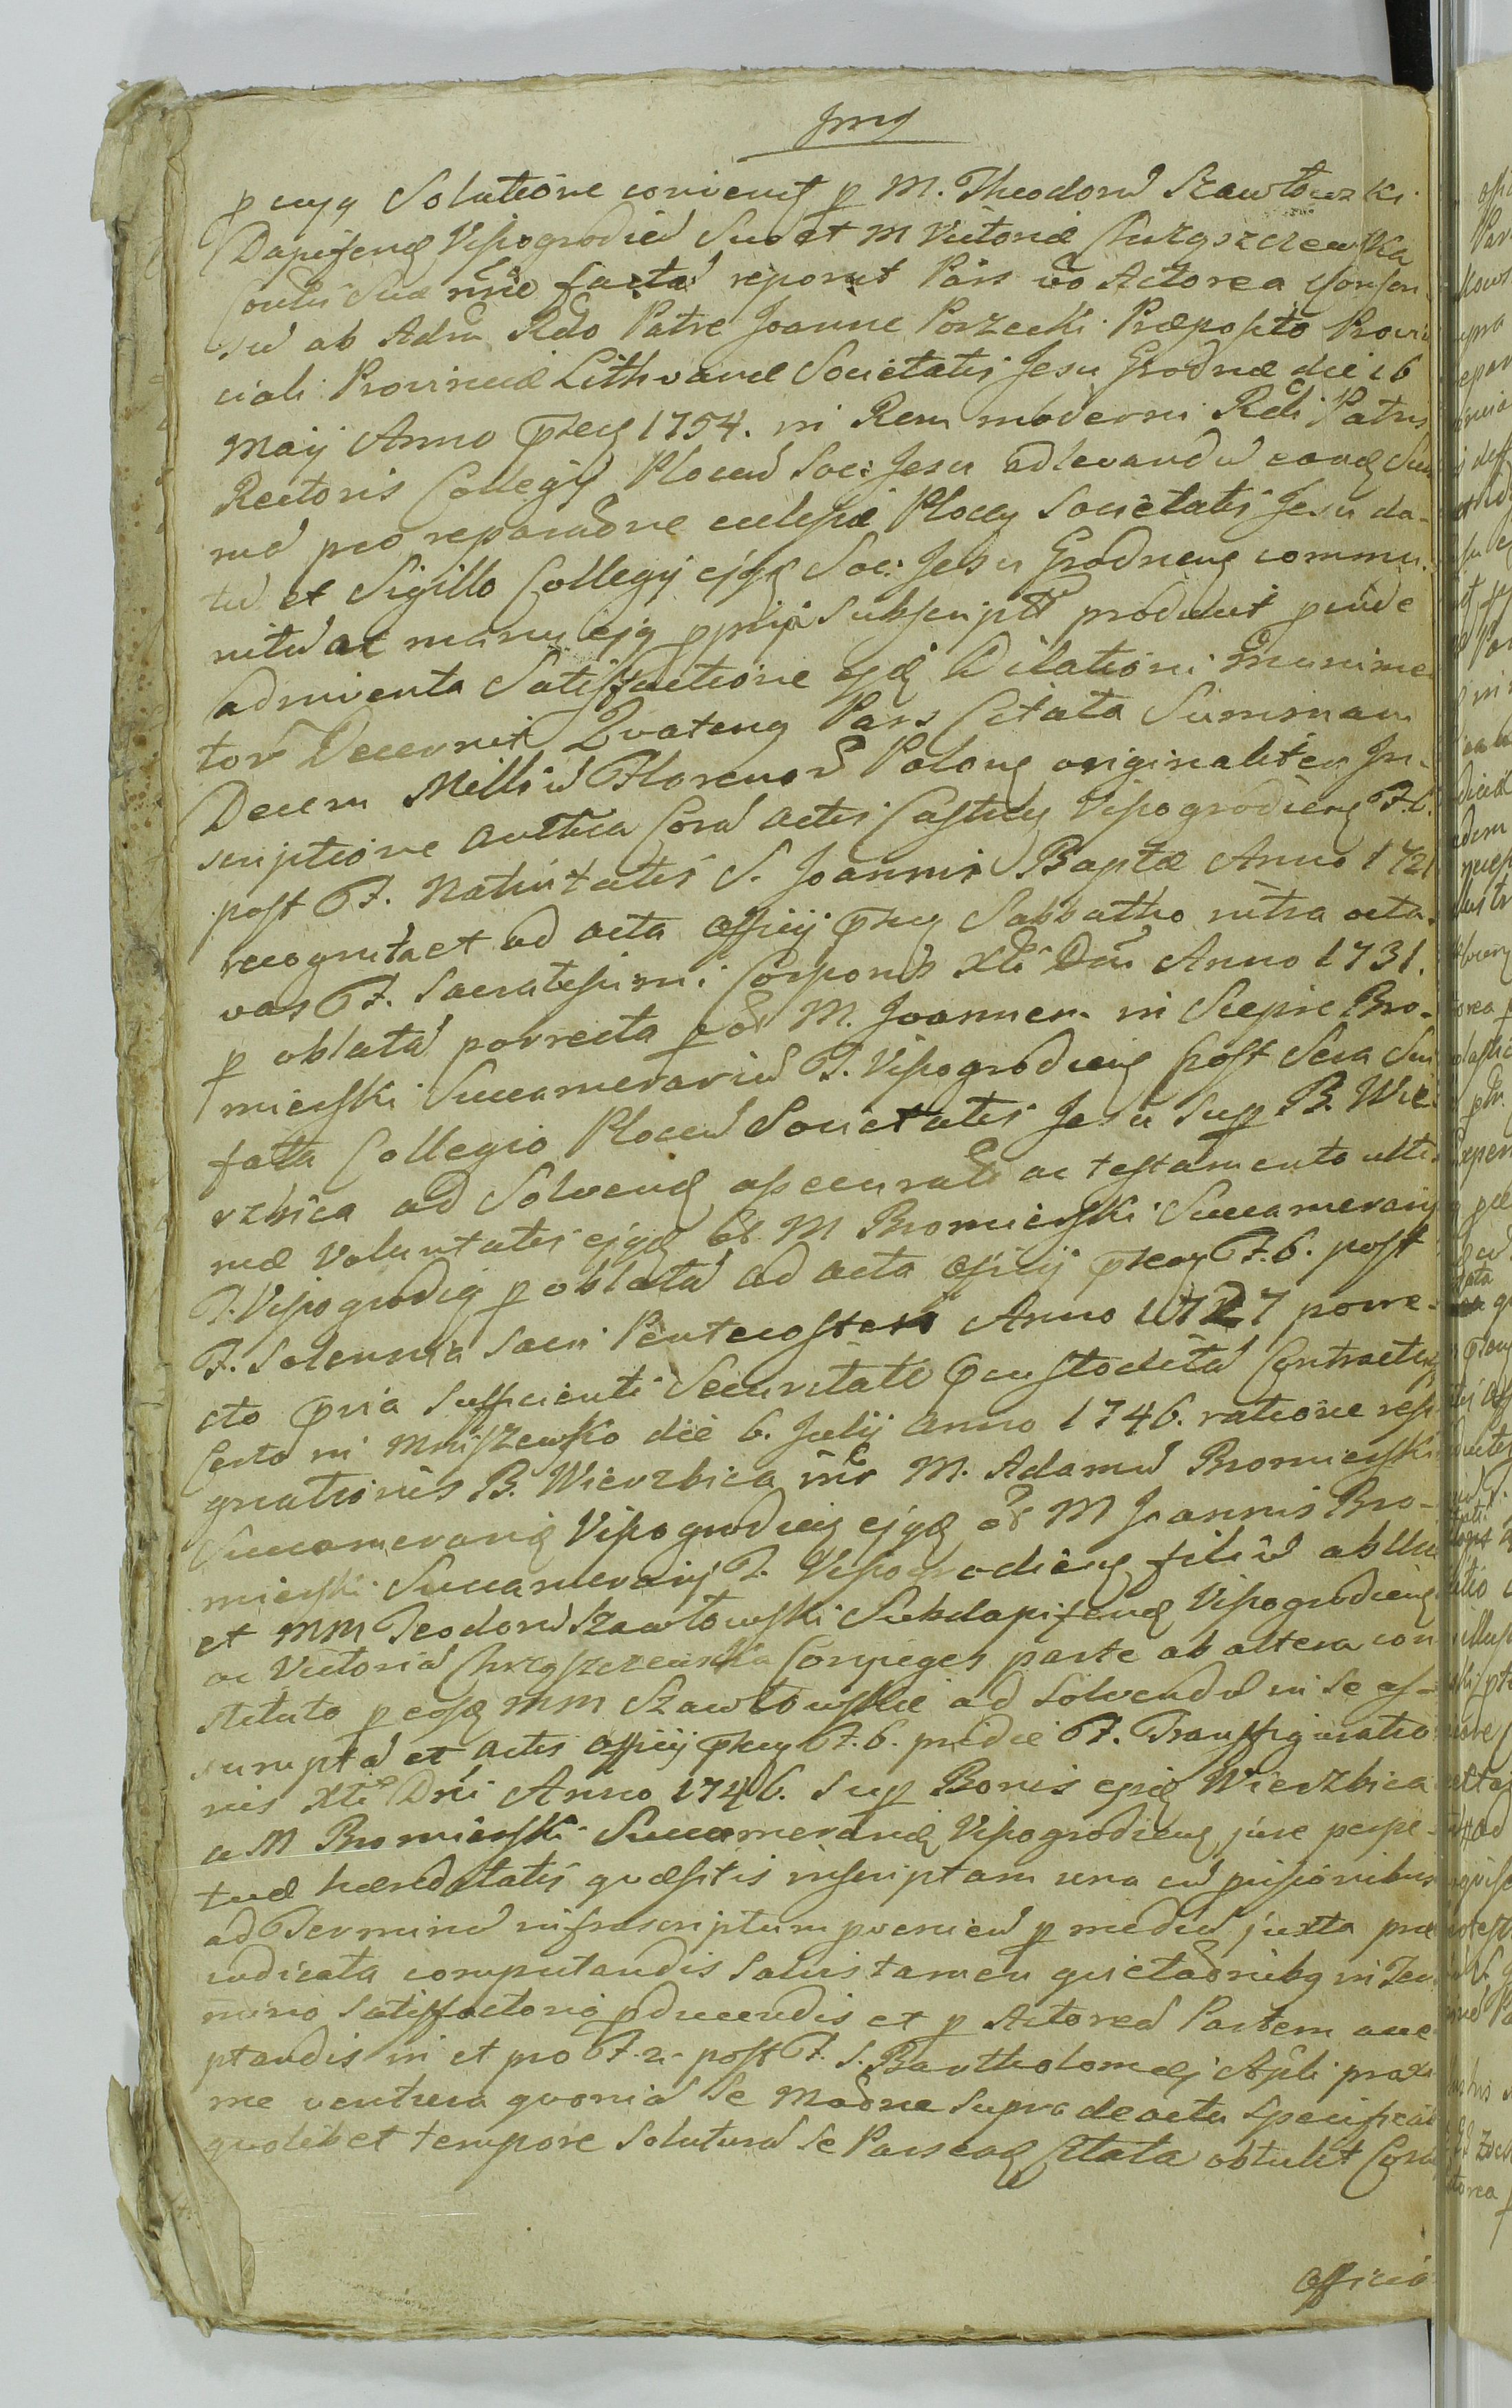 p cujq Solutione convenit p M. Theodorū Szawłowski
Dapiferū Visogrodien̄ Suo et M Victoriæ Chrzgszczewska
Contū Suæ nn̄e facta reponit Pars vo Actorea Consen-
sū ab Adm Rdo Patre Joanne Porzecki Præposito Provin
ciali Provinciæ Lithvanæ Societatis Jesu Grodnæ die 16
Maij Anno pn̄tis 1754. in Rem moderni Rdi Patris
Rectoris Collegij Plocen̄ Soc: Jesu ad levandū eandē Sum
mā pro reparaōne ecclesiæ Plocen̄ Societatis Jesu da-
tū et Sigillo Collegij ejqs Soc: Jesu Grodnen̄ commu-
nitū ac manu ejq ppria Subscriptū produxit proinde
adinventa Satisfactione ejqd Dilationi munimen
torū Decernit Qvatenq Pars Citata Summam
Decem Milliū Florenorū Polon̄ originaliter In-
scriptione authca Corā actis Castren̄ Visogrodien̄ F. 6.
post F. Nativitatis S. Joannis Baptæ Anno 1721
recognita et ad acta officij pn̄tis Sabbatho intra octa-
vas F. Sacratissimi Corporis Xti Dn̄i Anno 1731.
p oblatā porrecta p oō M. Joannem in Słepic Bro-
mierski Succamerariū T. Visogrodien̄ post Sera Sua
fata Collegio Plocen̄ Societatis Jesu Sup B. Wie
rzbica ad Solvend̄ assecurato ac testamento ulti
mæ voluntatis ejqd oō M Bromierski Succamerarij
T. Visogrodien̄ p oblatā ad acta officij pn̄tis F. 6. post
F. Solennia Sacri Pentecostes Anno 1727 porre-
cto pria Sufficienti Securitate custodita Contractuq
Certo in Mniszewsko die 6. Julij anno 1746. ratione resi
gnationis B. Wierzbica int M. Adamū Bromierski
Succamerariū Visogrodien̄ ejqd oō M Joannis Bro-
mierski Succamerarij T. Visogrodien̄ filiū ab Una
et MM Teodorū Szawłowski Subdapiferū Visogrodien̄
ac Victoriā Chrzgszczewska Conjuges parte ab altera con
stituto p eosd MM Szawłowskie ad Solvendū in se as-
sumptā et actis officij pn̄tis F. 6. pridie F. Transfiguratio
nis Xti Dn̄i Anno 1746. Sup Bonis ejqd Wierzbica
a M Bromierski Succamerariū Visogrodien̄ jure perpe-
tuæ hæreditatis qvæsitis inscriptam una cū pensionibus
ad Terminū infrascriptum pvenien̄ p mediū juxta præ
indicata computandis Salvis tamen qvietaōnibq in Ter
mino Satisfactorio pducendis et p Actoreā Partem acce
ptandis in et pro F. 2. post F. S. Bartholomæj Apli proxi
me ventura qvoniā Se Maōne Supra de actu Specificat
qvolibet tempore Soluturā Se Pars eadē Citata obtulit Corā
officio